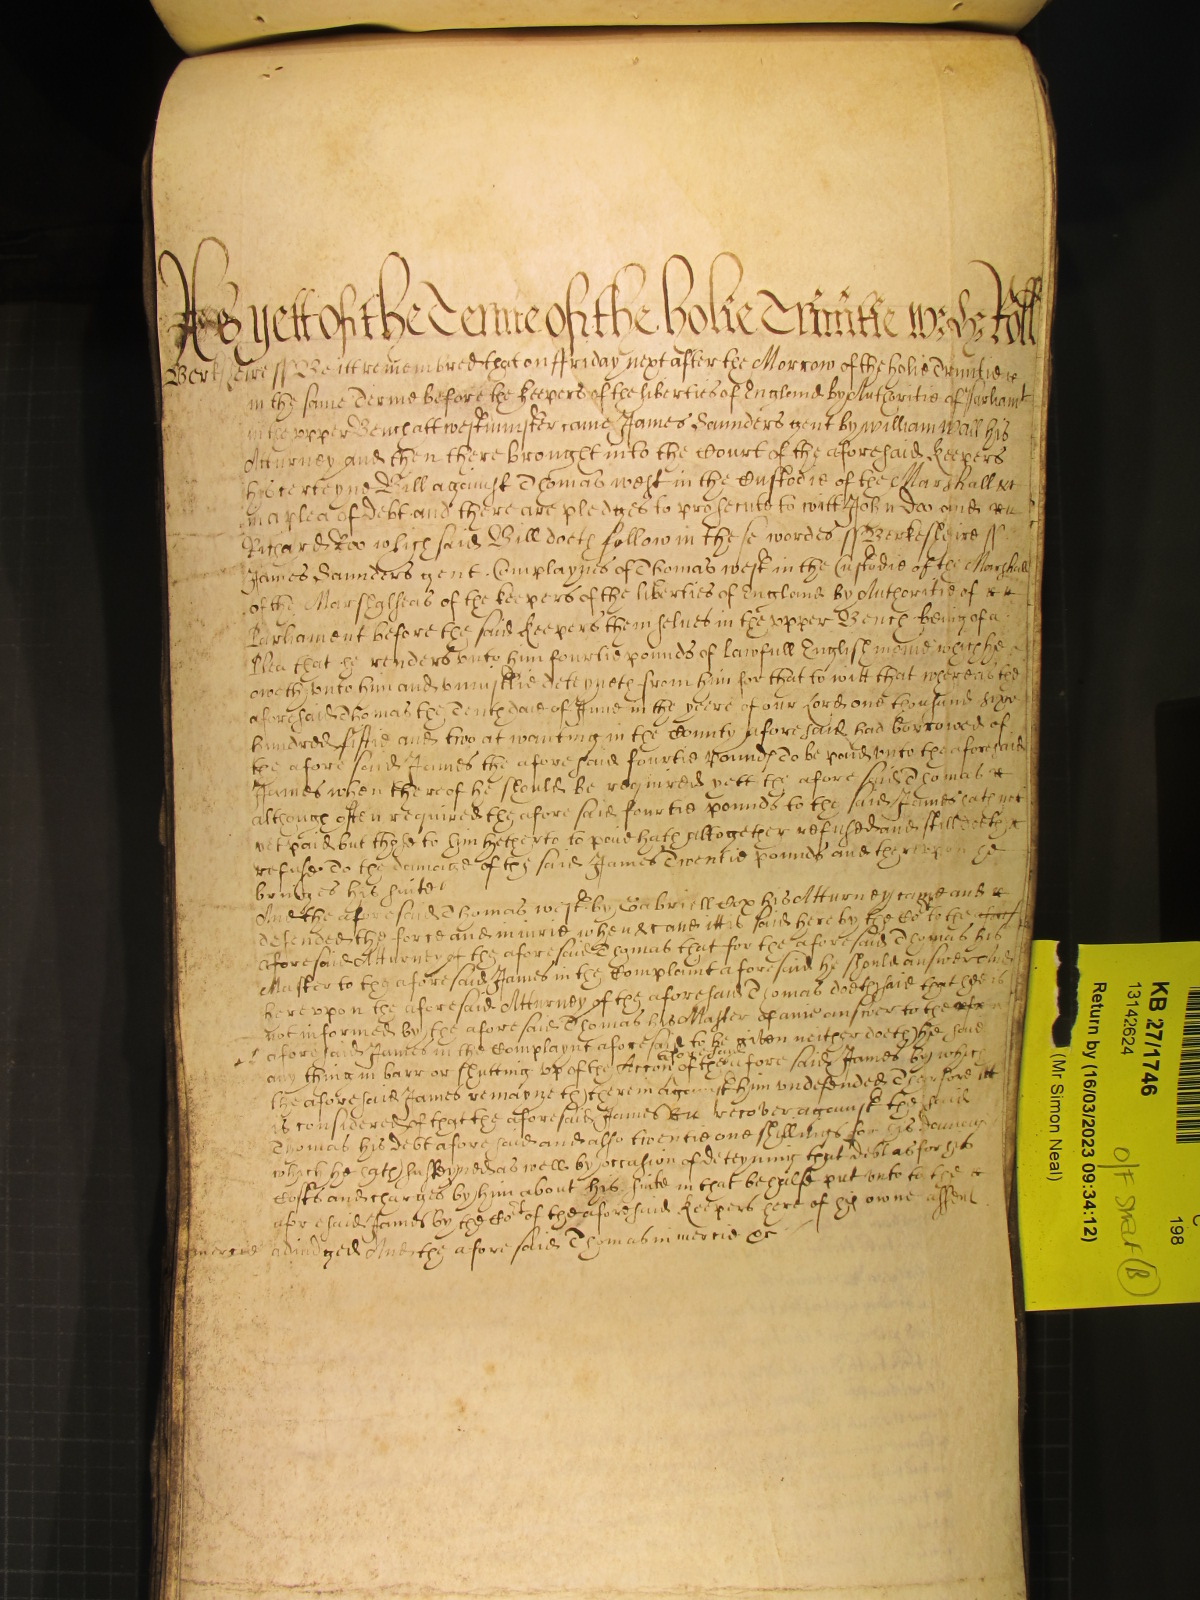 As yett of the Terme of the holie Trinitie Roll
Berkesheire ss Be itt remembred that on ffriday next after the Morrow of the holie Trinitie
in the same Terme before the keepers of the liberties of England by Authoritie of Parliamt
in the upper Bench att westminster came James Saunders gent by William Wall his
Atturney and then there brought into the Court of the aforesaid Keepers
his certeyne Bill against Thomas West in the Custodie of the Marshall &c
in a plea of debt and there are pledges to prosecute to witt John Doo and
Richard Roo which said Bill doeth follow in these wordes ss Berkesheire ss
James Saunders gent Complaynes of Thomas West in the Custodie of the Marshall
of the Marshalseas of the keepers of the liberties of England by Authoritie of
Parliament before the said Keepers themselves in the upper Bench being of a
Plea that he renders unto him fourtie pounds of lawfull English monie which he
oweth unto him and uniustlie deteyneth from him for that to witt that whereas the
aforesaid Thomas the Tenth daie of June in the yeere of our Lord one thousand sixe
hundred fiftie and two at wanting in the County aforesaid had borrowed of
the aforesaid James the aforesaid fourtie Pounds To be paid unto the aforesaid
James when thereof he should be required yett the aforesaid Thomas
although often required the aforesaid fourtie pounds to the said James hath not
yet paid but those to him hetherto to paie hath altogether refused and still doeth
refuse To the damage of the said James Twentie pounds and thereupon he
bringes his suite
And the aforesaid Thomas West by Gabriell Cox his Atturney came and
defended the force and iniurie when &c and itt is said here by the Cort to the
aforesaid Atturney of the aforesaid Thomas that for the aforesaid Thomas his
Master to the aforesaid James in the Complaint aforesaid he should answer and
hereupon the aforesaid Atturney of the aforesaid Thomas doeth said that hee is
not informed by the aforesaid Thomas his Master of anie answer to the
aforesaid James in the Complaynt aforesaid to be given neither doeth he saie
any thing in barr or shutting up of the Accon aforesaid of the aforesaid James by which
the aforesaid James remayneth therein against him undefended Therfore itt
is considered of that the aforesaid James recover against the said
Thomas his debt aforesaid and also twentie one shillings for his damag
which he hath susteyned as well by occasion of deteyning that debt as for his
Costs and charges by him about his suite in that behalfe put unto to the
aforesaid James by the Cort of the aforesaid Keepers here of his owne assent
mercie adiudged And the aforesaid Thomas in mercie &c
KB 27/1746
13142624
Return by (16/03/2023 09:34:12)
(Mr Simon Neal)
198